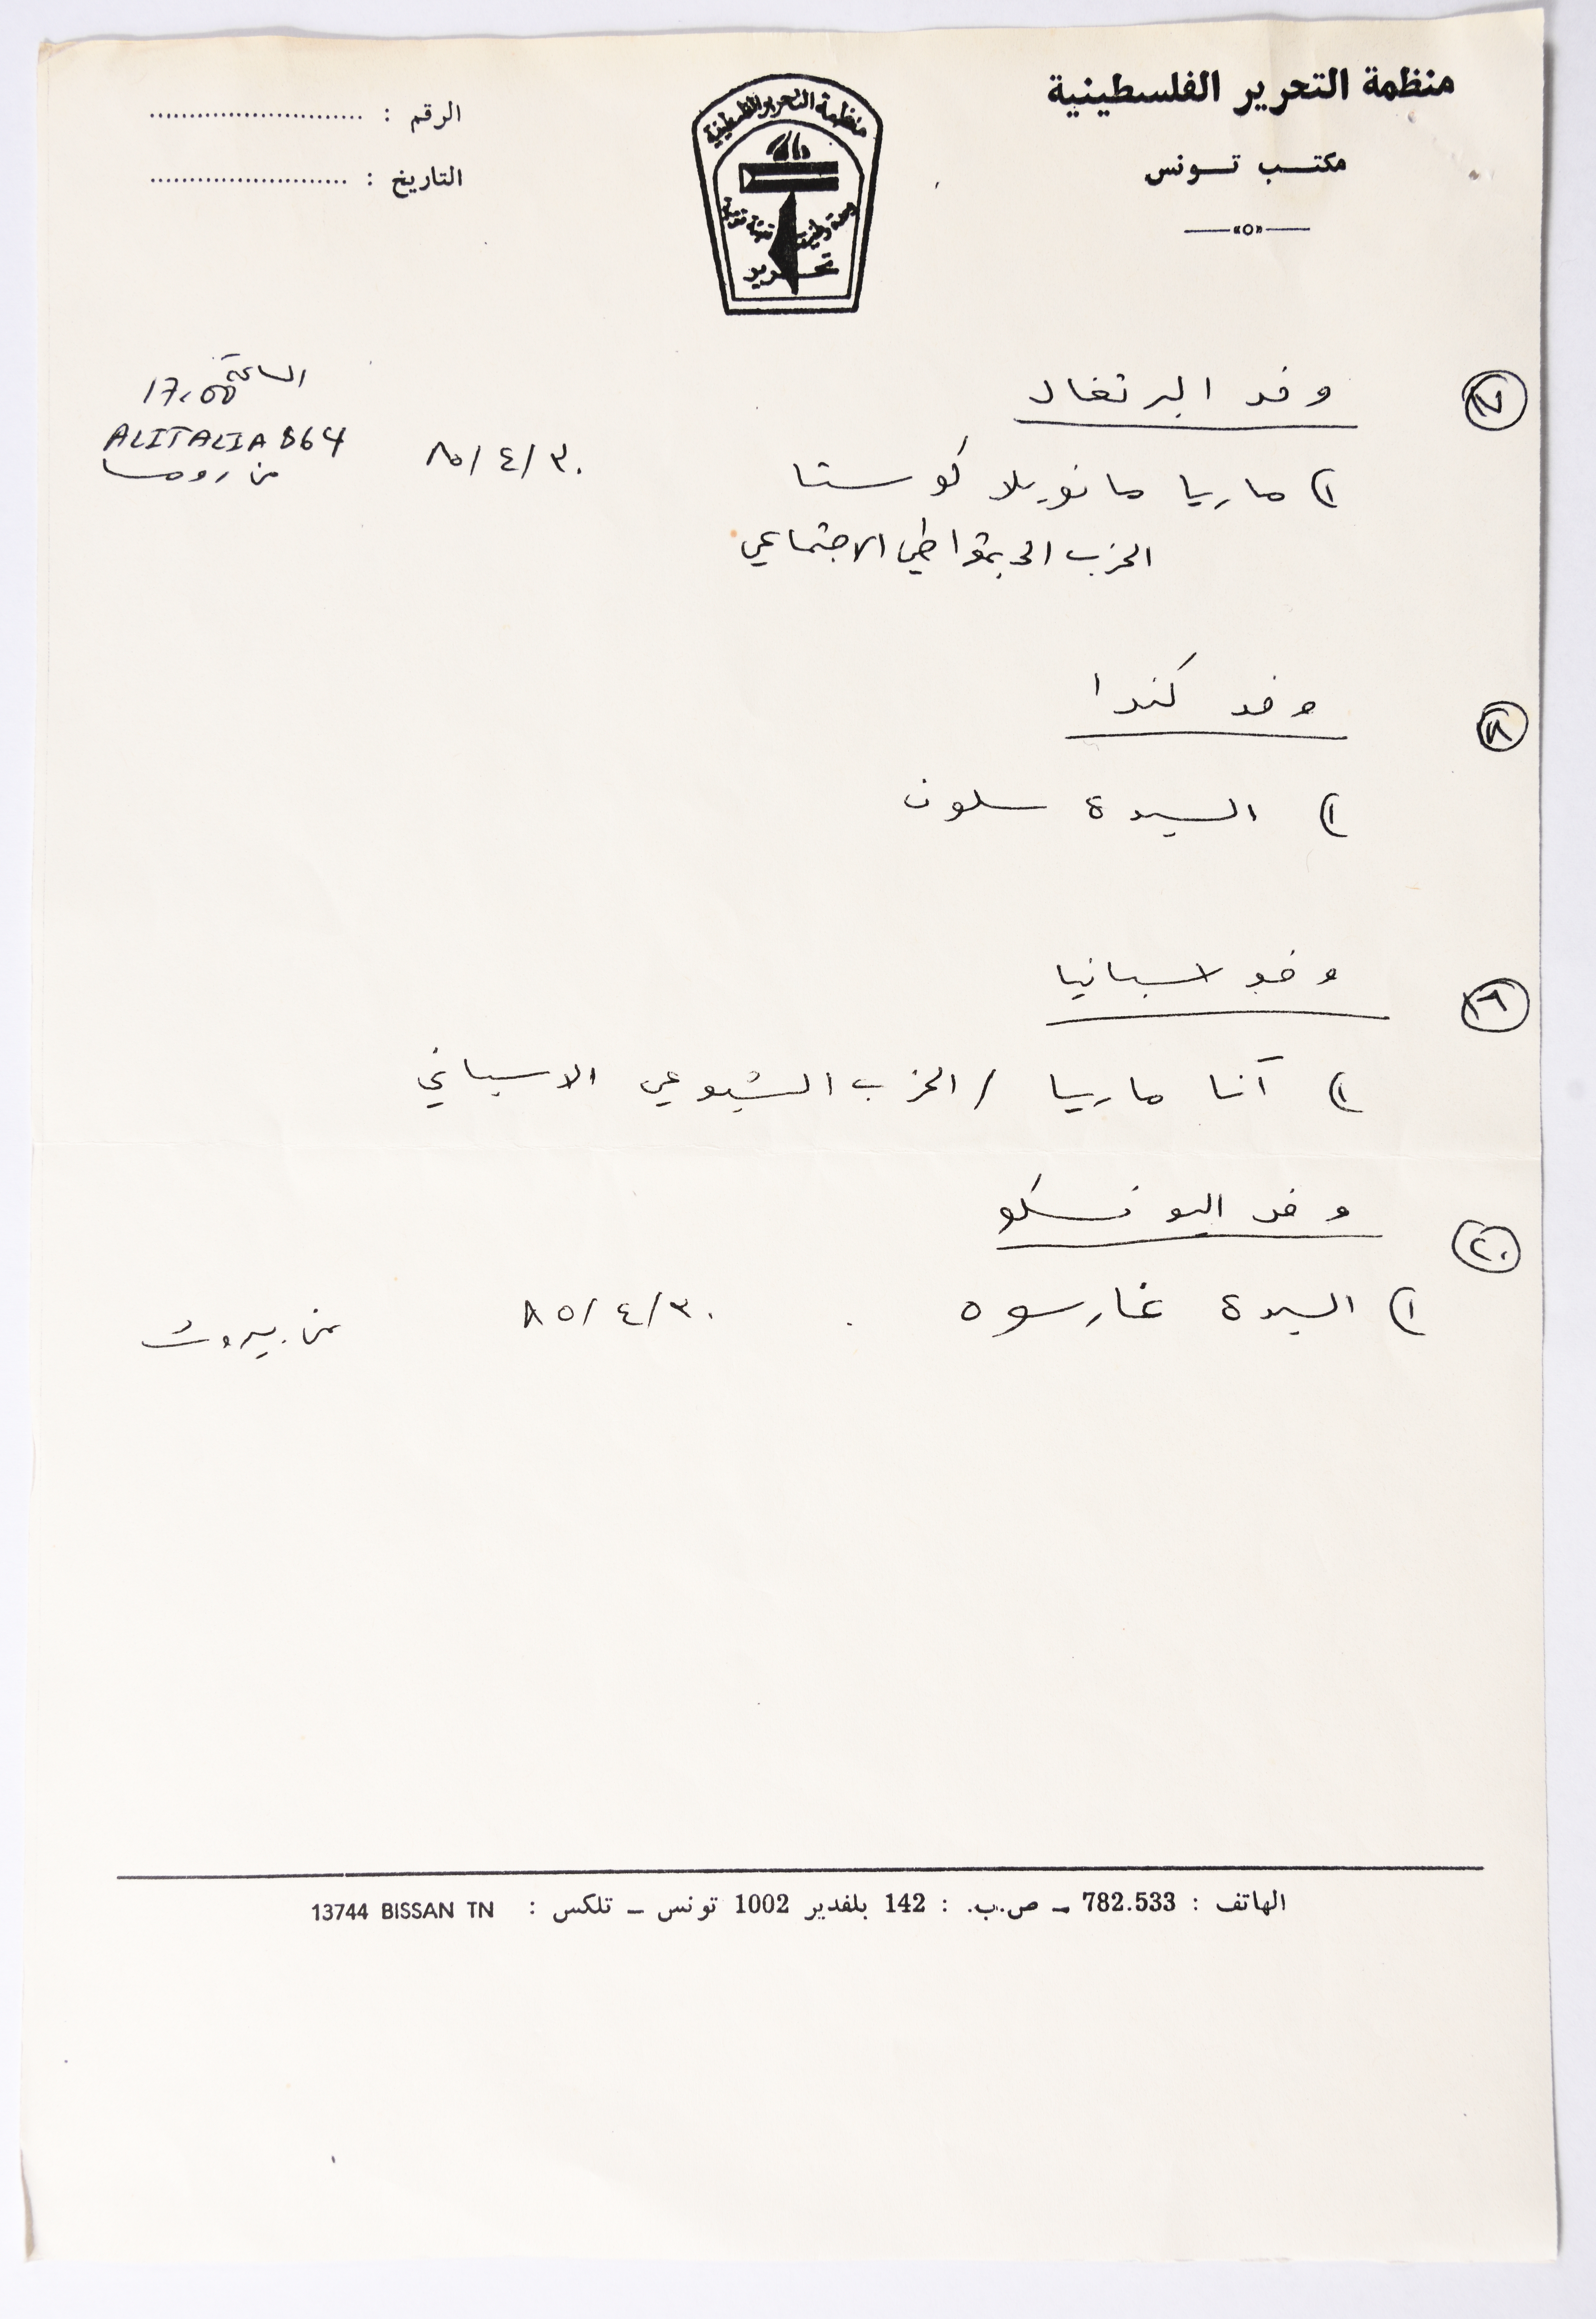 منظمة التحرير الفلسطينية
مكتب تونس
الرقم :
التاريخ :
منظمة التحرير الفلسطينية
وحدة وطنية تعبئة قومية
تحرير
١٧ وفد البرتغال
١) ماريا مانويلا كوستا ٨٥/٤/٣٠ الساعة 17,00
ALITALIA 864
من روما
الحزب الديمقراطي الاجتماعي
١٨ وفد كندا
١) السيدة سلون
١٩ وفد اسبانيا
١) آنا ماريا / الحزب الشيوعي الاسباني
٢٠ وفد اليونسكو
١) السيدة غارسوه ٨٥/٤/٣٠ من بيروت
الهاتف : 782.533 - ص.ب. : 142 بلفدير 1002 تونس - تلكس : 13744 BISSAN TN